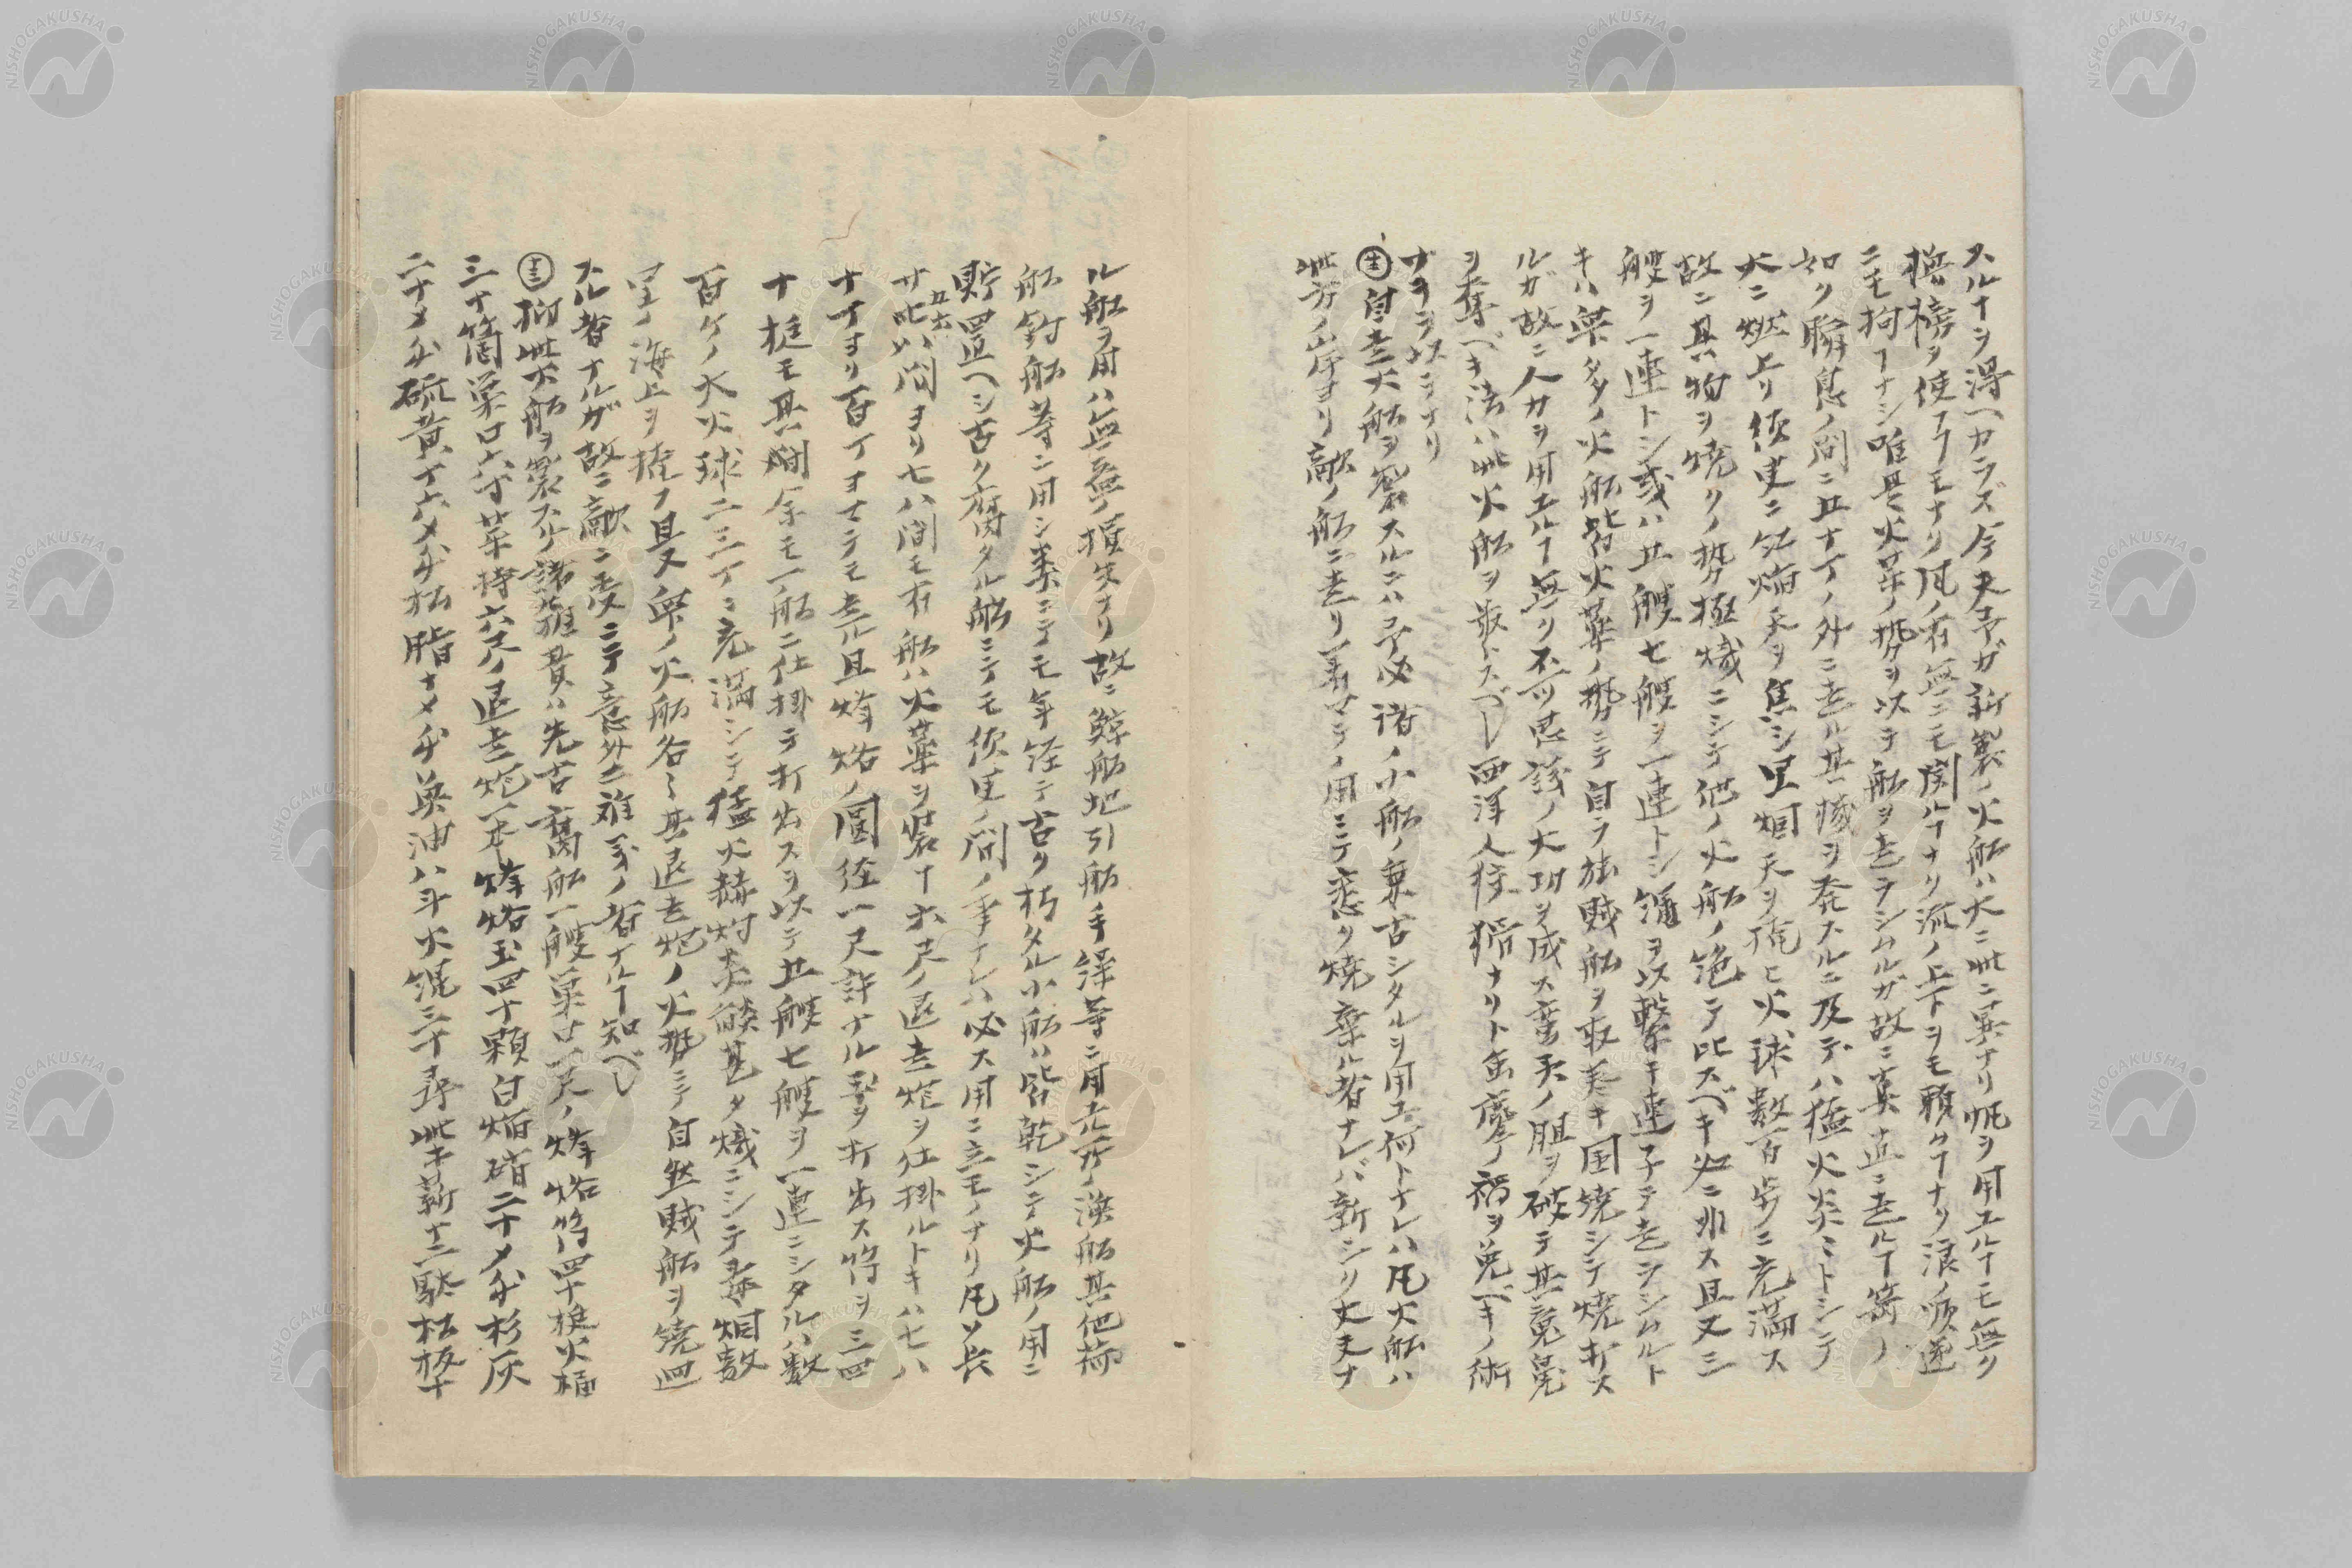 スルヿヲ得ヘカラズ今夫予ガ新製ノ火船ハ大ニ此ニ異ナリ帆ヲ用エルヿモ無ク
櫓榜ヲ使フヿモナク凡ノ有無ニモ関ルヿナク流ノ上下ヲモ頼ムヿナク浪ノ順逆
ニモ拘ワヿナシ唯其火薬ノ勢ヲ以テ船ヲ走ラシムルガ故ニ真直ニ走ルヿ箭ノ
如ク瞬息ノ間ニ五十丁ノ外ニ走ル其機ヲ発スルニ及デハ猛火炎ミトシテ
大ニ燃上リ須臾ニ紅焔天ヲ焦シ黒烟天ヲ掩ヒ火球数百歩ニ充満ス
故ニ其物ヲ焼クノ勢極熾ニシテ他ノ火船ノ絶テ比スベキ処ニ非ス且又三
艘ヲ一連トシ或ハ五艘七艘ヲ一連トシ鎖ヲ以繋キ連子テ走ラシムルト
キハ衆タタノ火船皆火薬ノ勢ニテ自ラ旋賊船ヲ取美キ国焼シテ焼打ス
ルガ故ニ人力ヲ用エルヿ無ク不ツ思議ノ大功ヲ成ス蛮夷ノ胆ヲ破テ其寃鬼
ヲ奪ベキ法ハ此火船ヲ最トスベし西洋人狡猾ナリト虽麾ノ禍ヲ免ベキノ術
ナキヲ以テナリ
自走火船ヲ製スルニハ予必諸ノ小船ノ棄古シタルヲ用エ何トナレハ凡火船ハ
此方ノ岸ヨリ敵ノ船ニ走リ着マテノ用ニテ悉ク焼棄ル者ナレバ新シク丈夫ナ
ル船ヲ用ハ無益ノ損失ナリ故ニ鯨船地引船手繰等ニ用志所ノ漁船其他荷
船釣船等ニ用シ類ニテモ年経テ古ク朽タル小船ハ皆乾シテ火船ノ用ニ
貯置ヘシ古ク腐タル船ニテモ須臾ノ間ノ事ナレハ必ス用ニ立モノナリ凡ソ長
サ此五六八間ヨリ七八間モ有船ハ火薬ヲ装ヿ六尺ノ退走炮ヲ仕掛ルトキハ七八
十丁ヨリ百丁オナテモ走ル且烽烙ノ圓径一尺許ナル墾ヲ打出ス筒ヲ三四
十挺モ其間余モ一船ニ仕掛テ打出スヲ以テ五艘七艘ヲ一連ニシタルハ数
百ケノ大火球二三丁ニ充満シテ猛火赫灼炎燄甚タ熾ニシテ毒烟数
里ノ海上ヲ掩フ且又衆ノ火船各々其退走炮ノ火勢ニテ自然賊船ヲ繞囲
スル者ナルガ故ニ敵ニ度ニテ意外ニ難義ノ者ナルヿ知べし
抑此火船ヲ製スル諸雑費ハ先古腐船一艘菓口一尺ノ烽烙筒四十挺火桶
三十箇菓口六寸葉持六尺ノ退走炮一本烽烙玉四十顆白焔硝二十メ匁杉灰
二十メ匁硫黄十六メ匁松脂十メ匁英油八斗火縄三十尋此木薪十二駄松板十